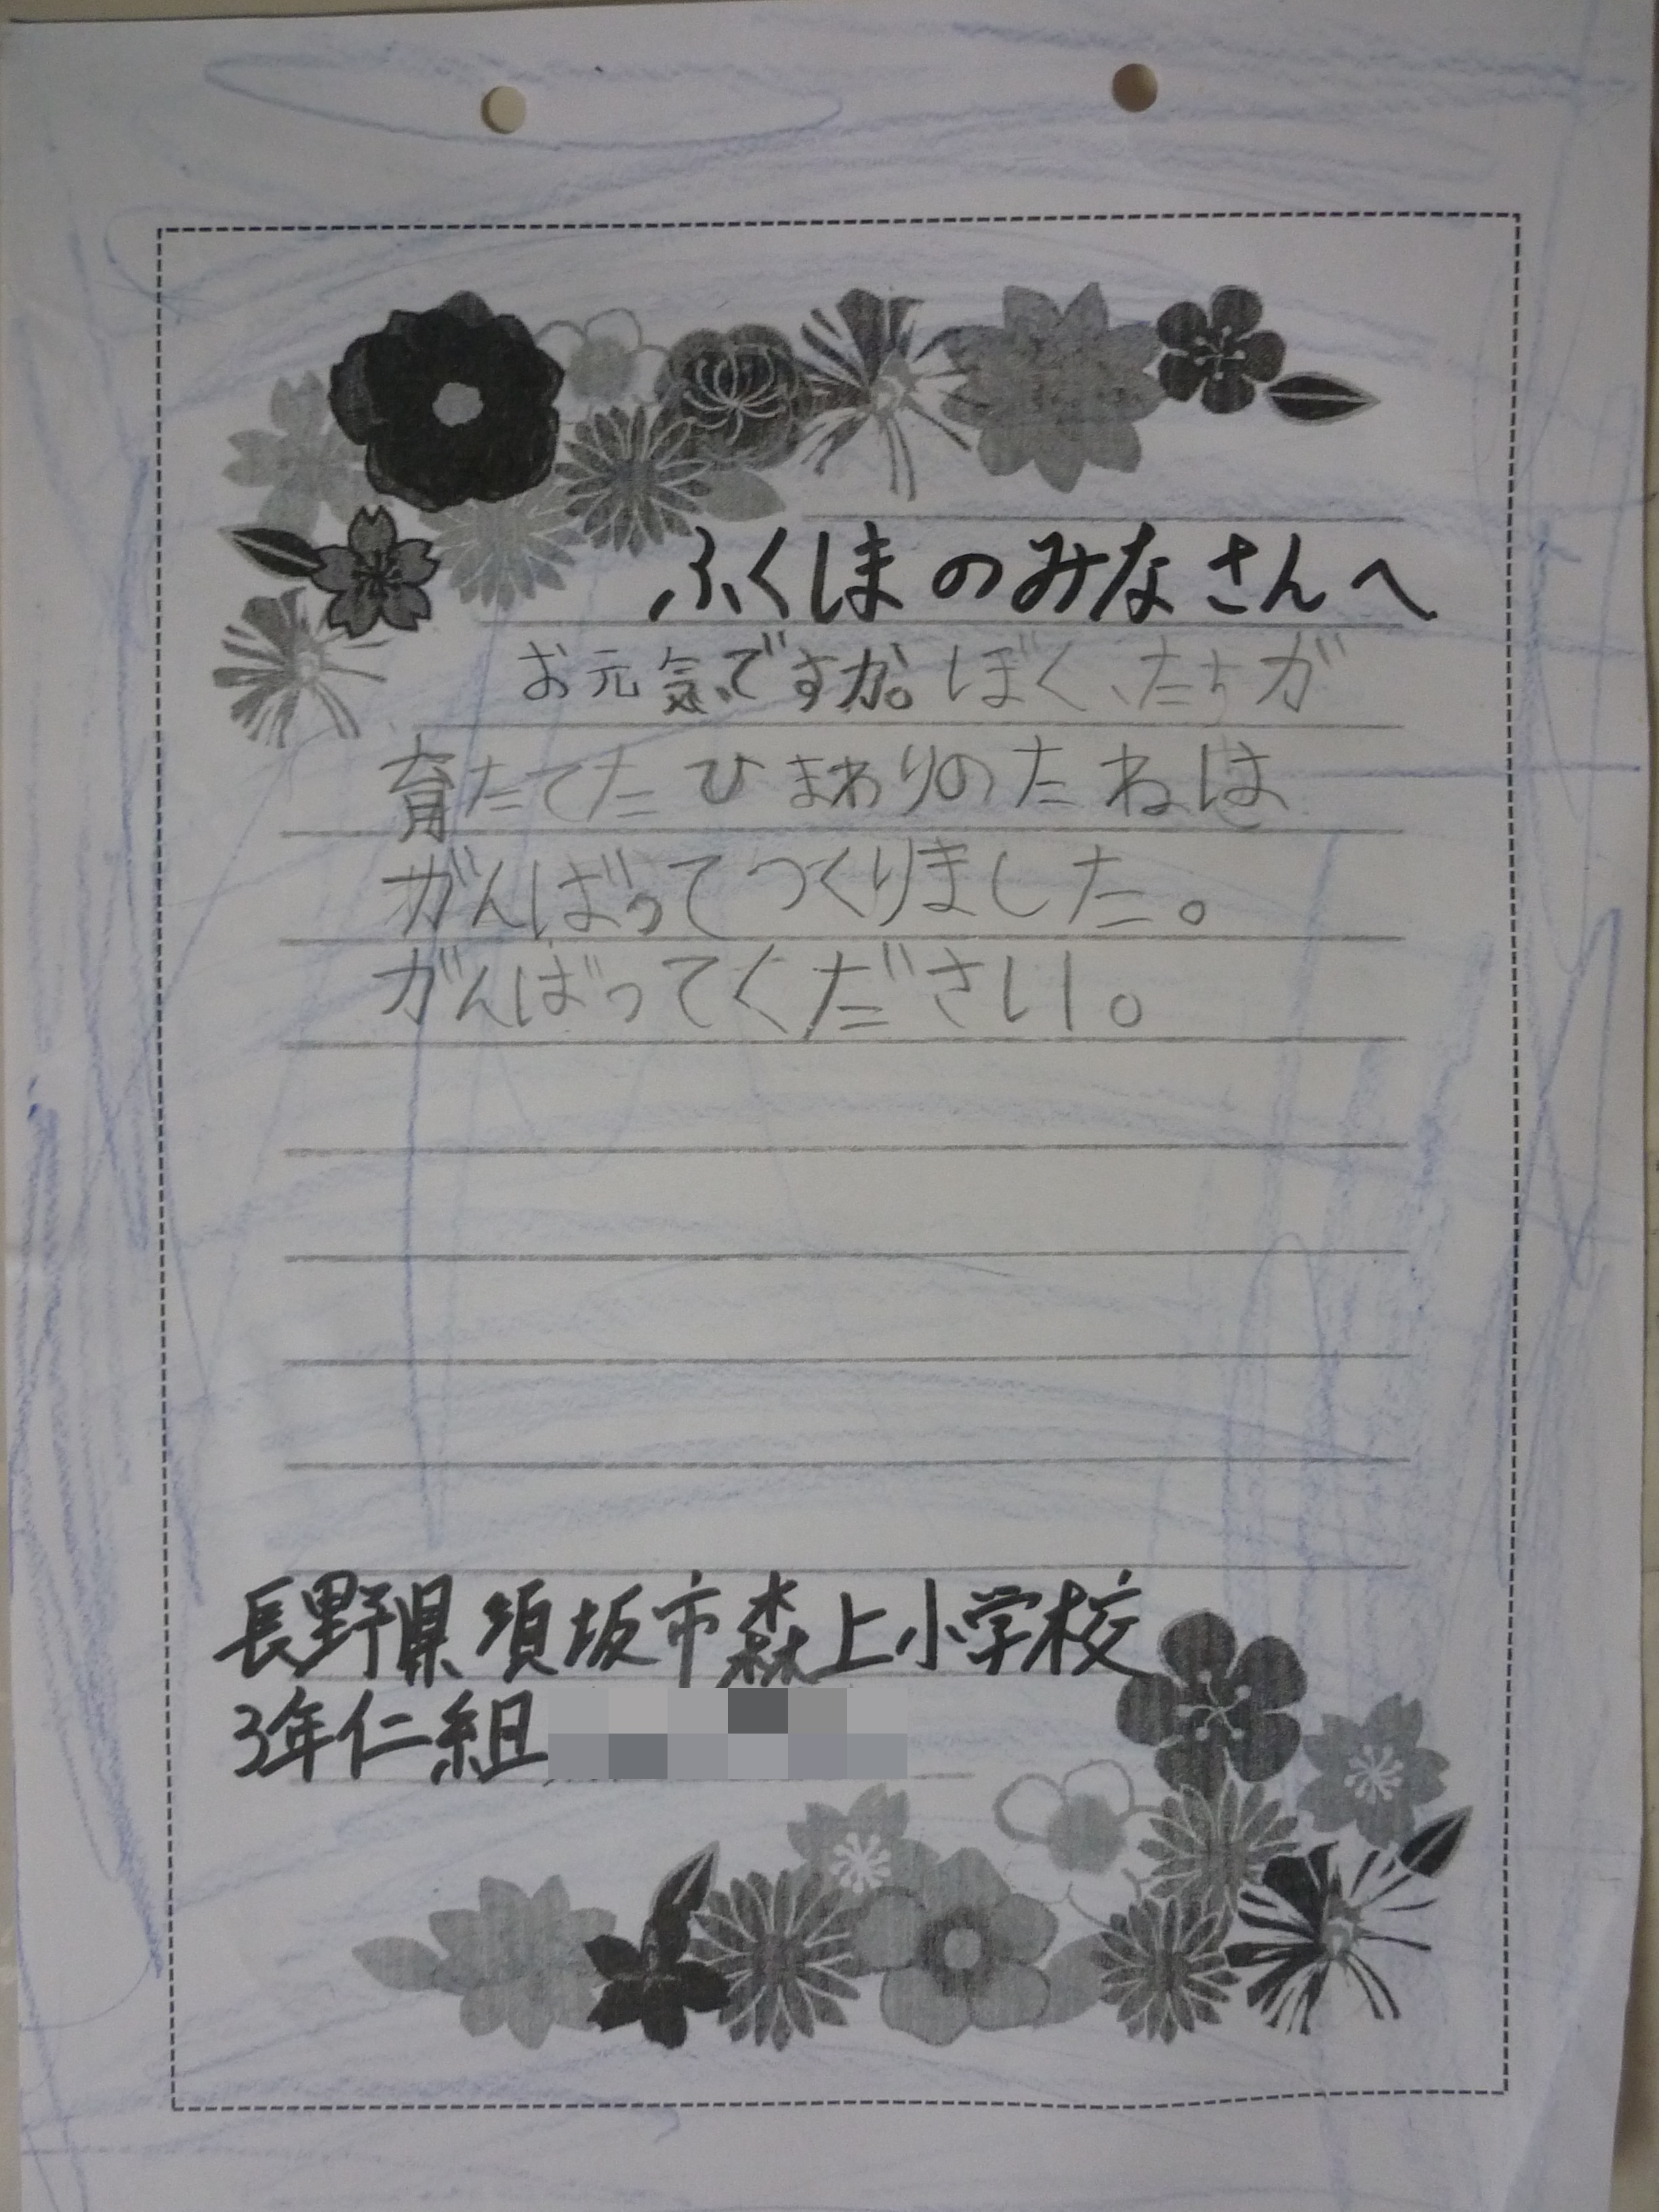 ふくしまのみなさんへ
お元気ですか。ぼくたちが
育たてたひまわりのたねは
がんばってつくりました。
がんばってください。
長野県須坂市森上小学校
3年仁組